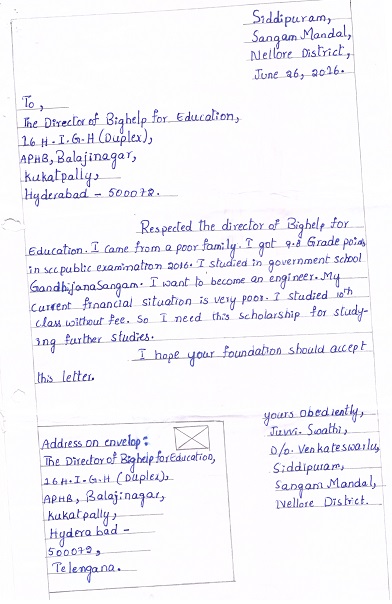 Siddipuram,
Sangam Mandal,
Nellore District,
June 26, 2016.
To,
The Director of Bighelp for Education,
26 H.I.G.H (Duplex),
APHB, Balajinagar,
Kukatpally,
Hyderabad - 500072.
Respected the director of Bighelp for
Education. I came from a poor family. I got 9.8 Grade points
in scc public examination 2016. I studied in government school
GandhijanaSangam. I want to become an engineer. My
current financial situation is very poor. I studied 10th
class without fee. So I need this scholarship for study-
ing further studies.
I hope your foundation should accept
this letter.
yours obediently,
Juvvi. Swathi,
D/o. Venkateswarlu,
Siddipuram,
Sangam Mandal,
Nellore District.
Address on envelop:
The Director of Bighelp for Education,
26 H.I.G.H (Duplex),
APHB, Balajinagar,
Kukatpally,
Hydera bad -
500072,
Telengana.